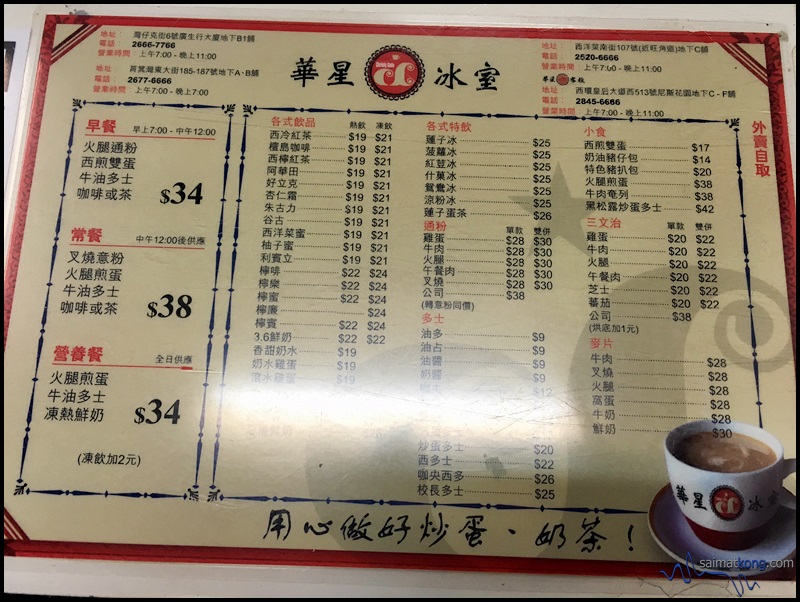 地址： 灣仔克街6號廣生行大廈地下B1舖
電話： 2666-7766
營業時間：上午7:00 - 晚上11:00
地址： 筲箕灣東大街185-187號地下A、B舖
電話： 2677-6666
營業時間：上午7:00 - 晚上7:00
華星 冰室
地址： 西洋菜南街107號(近旺角道)地下C舖
電話： 2520-6666
營業時間：上午7:00 - 晚上11:00
地址： 西環皇后大道西513號尼斯花園地下C - F舖
電話： 2845-6666
營業時間：上午7:00 - 晚上11:00
外賣自取
早餐 早上7:00 - 中午12:00
火腿通粉
西煎雙蛋
牛油多士
咖啡或茶 $34
常餐 中午12:00後供應
叉燒意粉
火腿煎蛋
牛油多士
咖啡或茶 $38
營養餐 全日供應
火腿煎蛋
牛油多士
凍熱鮮奶 $34
(凍飲加2元)
各式飲品 熱飲 凍飲
西冷紅茶 $19 $21
檀島咖啡 $19 $21
西檸紅茶 $19 $21
阿華田 $19 $21
好立克 $19 $21
杏仁霜 $19 $21
朱古力 $19 $21
谷古 $19 $21
西洋菜蜜 $19 $21
柚子蜜 $19 $21
利賓立 $19 $21
檸啡 $22 $24
檸樂 $22 $24
檸蜜 $22 $24
檸謙 $24
檸賓 $22 $24
3.6鮮奶 $22 $22
香甜奶水 $19
奶水雞蛋 $19
滾水雞蛋 $19
各式特飲
蓮子冰 $25
菠蘿冰 $25
紅荳冰 $25
什菓冰 $25
鴛鴦冰 $25
涼粉冰 $25
蓮子蛋茶 $26
通粉 單款 雙併
雞蛋 $28 $30
牛肉 $28 $30
火腿 $28 $30
午餐肉 $28 $30
叉燒 $28 $30
公司 $38
(轉意粉同價)
多士
油多 $9
油占 $9
油醬 $9
奶醬 $9
$12
炒蛋多士 $20
西多士 $22
咖央西多 $26
校長多士 $25
小食
西煎雙蛋 $17
奶油豬仔包 $14
特色豬扒包 $20
火腿煎蛋 $38
牛肉奄列 $38
黑松露炒蛋多士 $42
三文治 單款 雙併
雞蛋 $20 $22
牛肉 $20 $22
火腿 $20 $22
午餐肉 $20 $22
芝士 $20 $22
蕃茄 $20 $22
公司 $38
(烘底加1元)
麥片
牛肉 $28
叉燒 $28
火腿 $28
窩蛋 $28
牛奶 $28
鮮奶 $30
用心做好炒蛋、奶茶！
華星 冰室
saimatkong.com